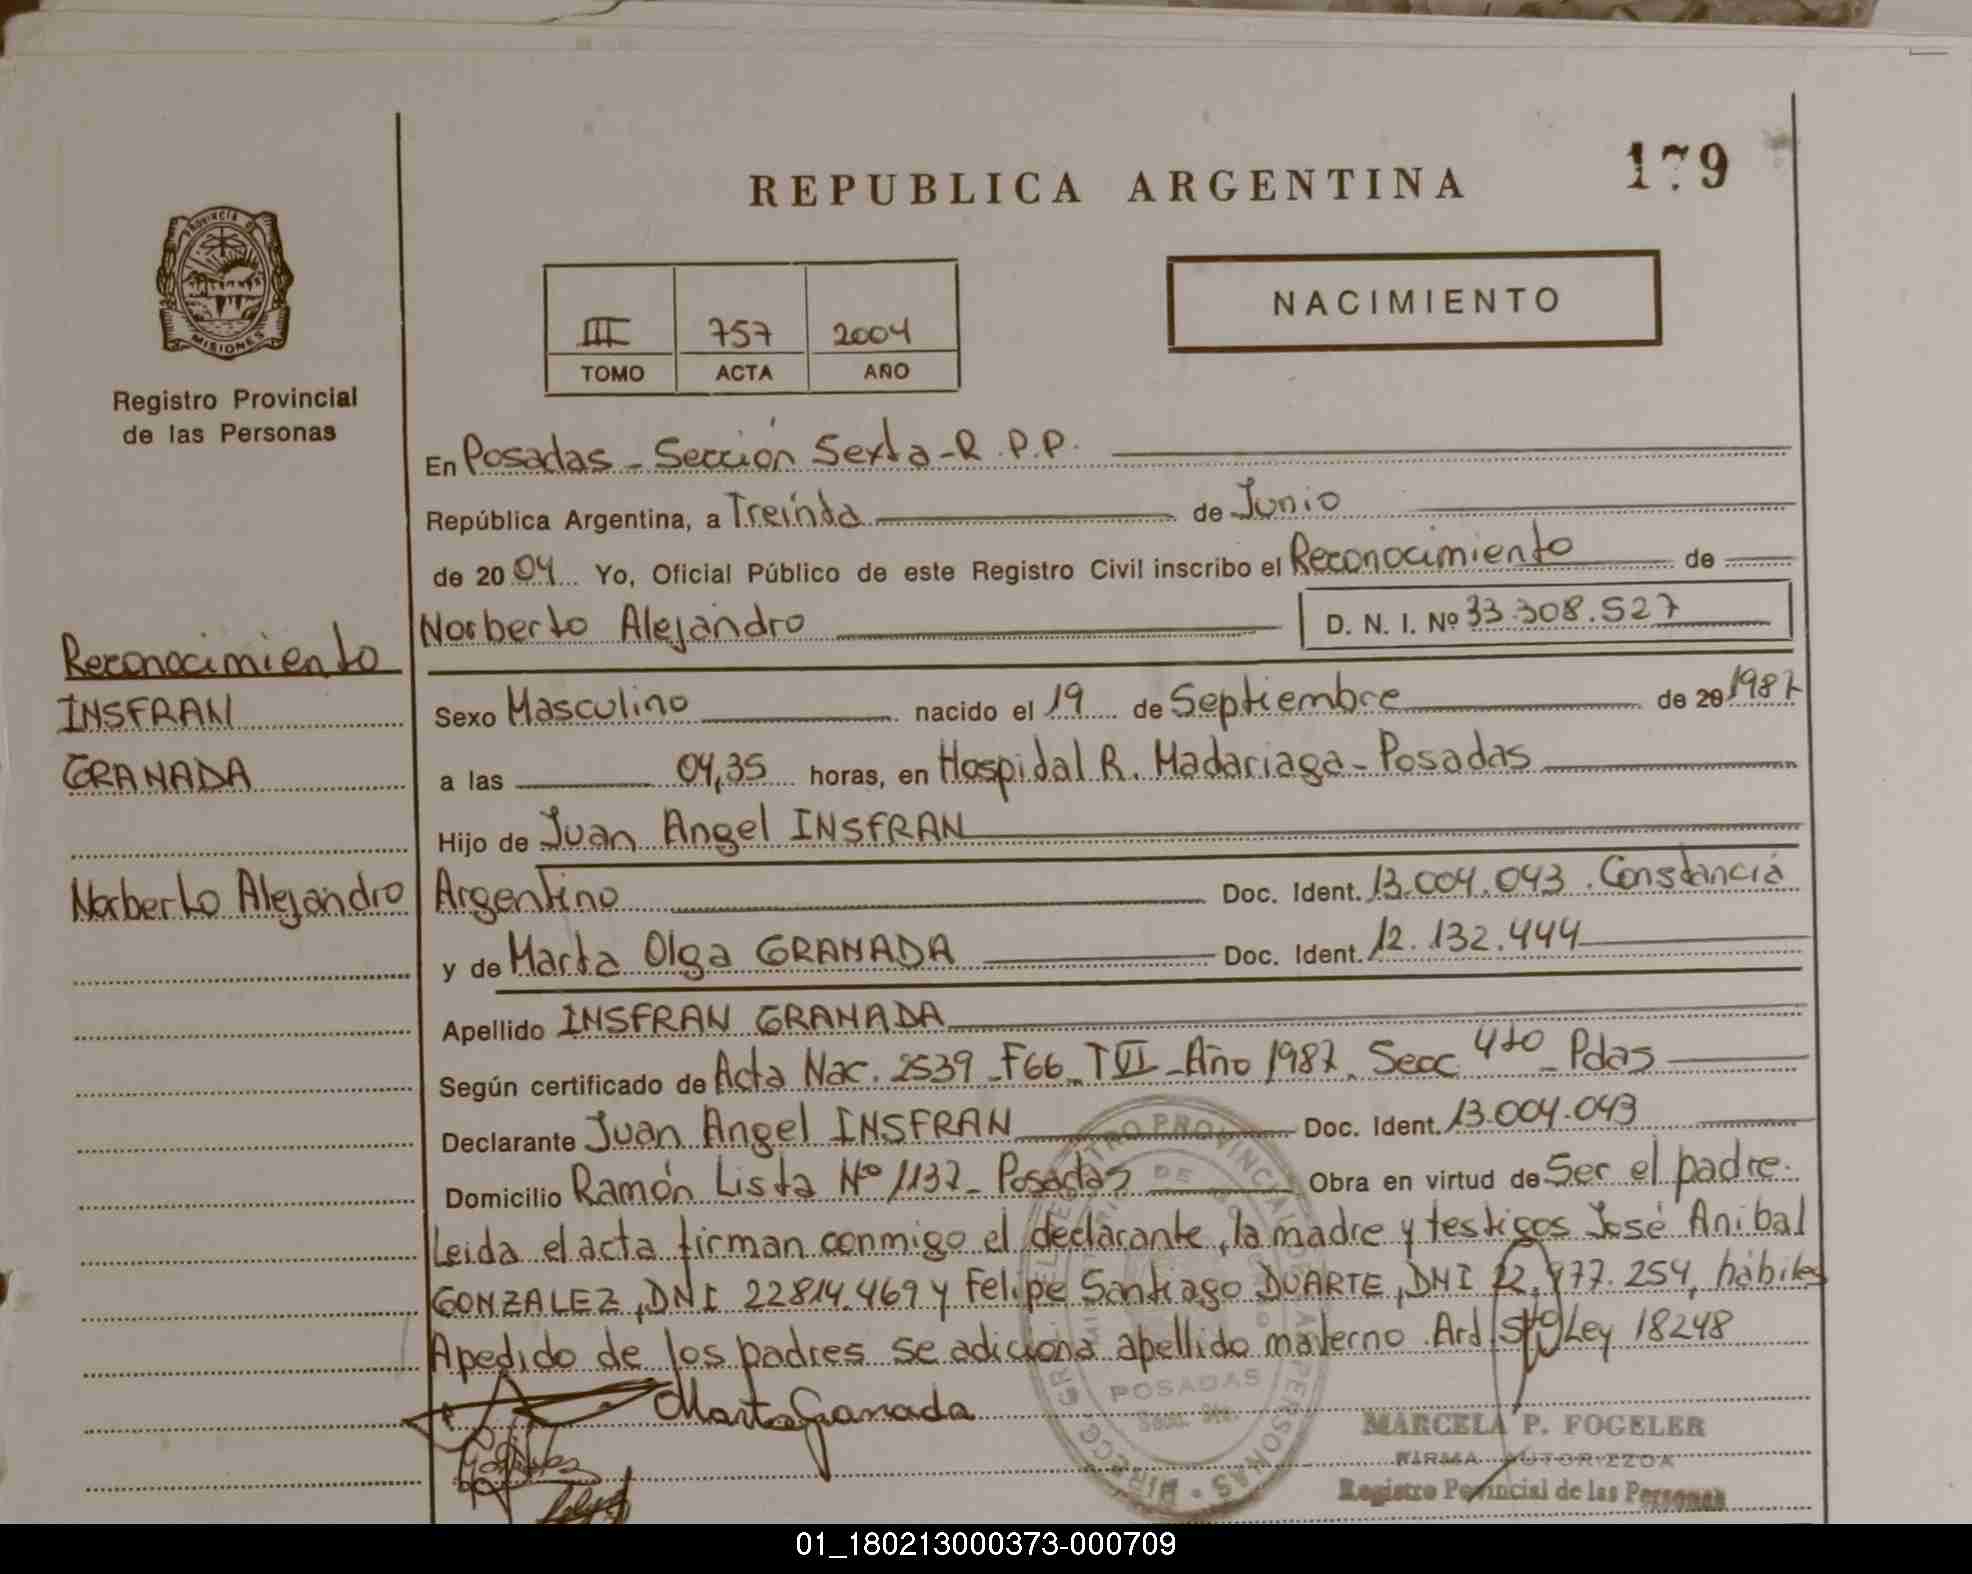 REPUBLICA ARGENTINA
179
PROVINCIA DE
MISIONES
Registro Provincial
de las Personas
III 757 2004
TOMO ACTA AÑO
NACIMIENTO
En Posadas - Sección Sexta - R.P.P.
República Argentina, a Treinta de Junio
de 2004 Yo, Oficial Público de este Registro Civil inscribo el Reconocimiento de
Norberto Alejandro D. N. I. Nº 33.308.527
Reconocimiento
INSFRAN
GRANADA
Norberto Alejandro
Sexo Masculino nacido el 19 de Septiembre de 20 1987
a las 04,35 horas, en Hospital R. Madariaga - Posadas
Hijo de Juan Angel INSFRAN
Argentino Doc. Ident. 13.004.043. Constancia
y de Marta Olga GRANADA Doc. Ident. 12.132.444
Apellido INSFRAN GRANADA
Según certificado de Acta Nac. 2539 - F66 - T VI - Año 1987. Secc. 4ta - Pdas
Declarante Juan Angel INSFRAN Doc. Ident. 13.004.043
Domicilio Ramón Lista Nº 1137 - Posadas Obra en virtud de Ser el padre.
Leida el acta firman conmigo el declarante, la madre y testigos José Anibal
GONZALEZ, DNI 22.814.469 y Felipe Santiago DUARTE, DNI 22.977.254, hábiles
Apedido de los padres se adiciona apellido materno. Art 5to Ley 18248
Marta Granada
POSADAS
MARCELA P. FOGELER
FIRMA AUTORIZADA
Registro Provincial de las Personas
01_180213000373-000709